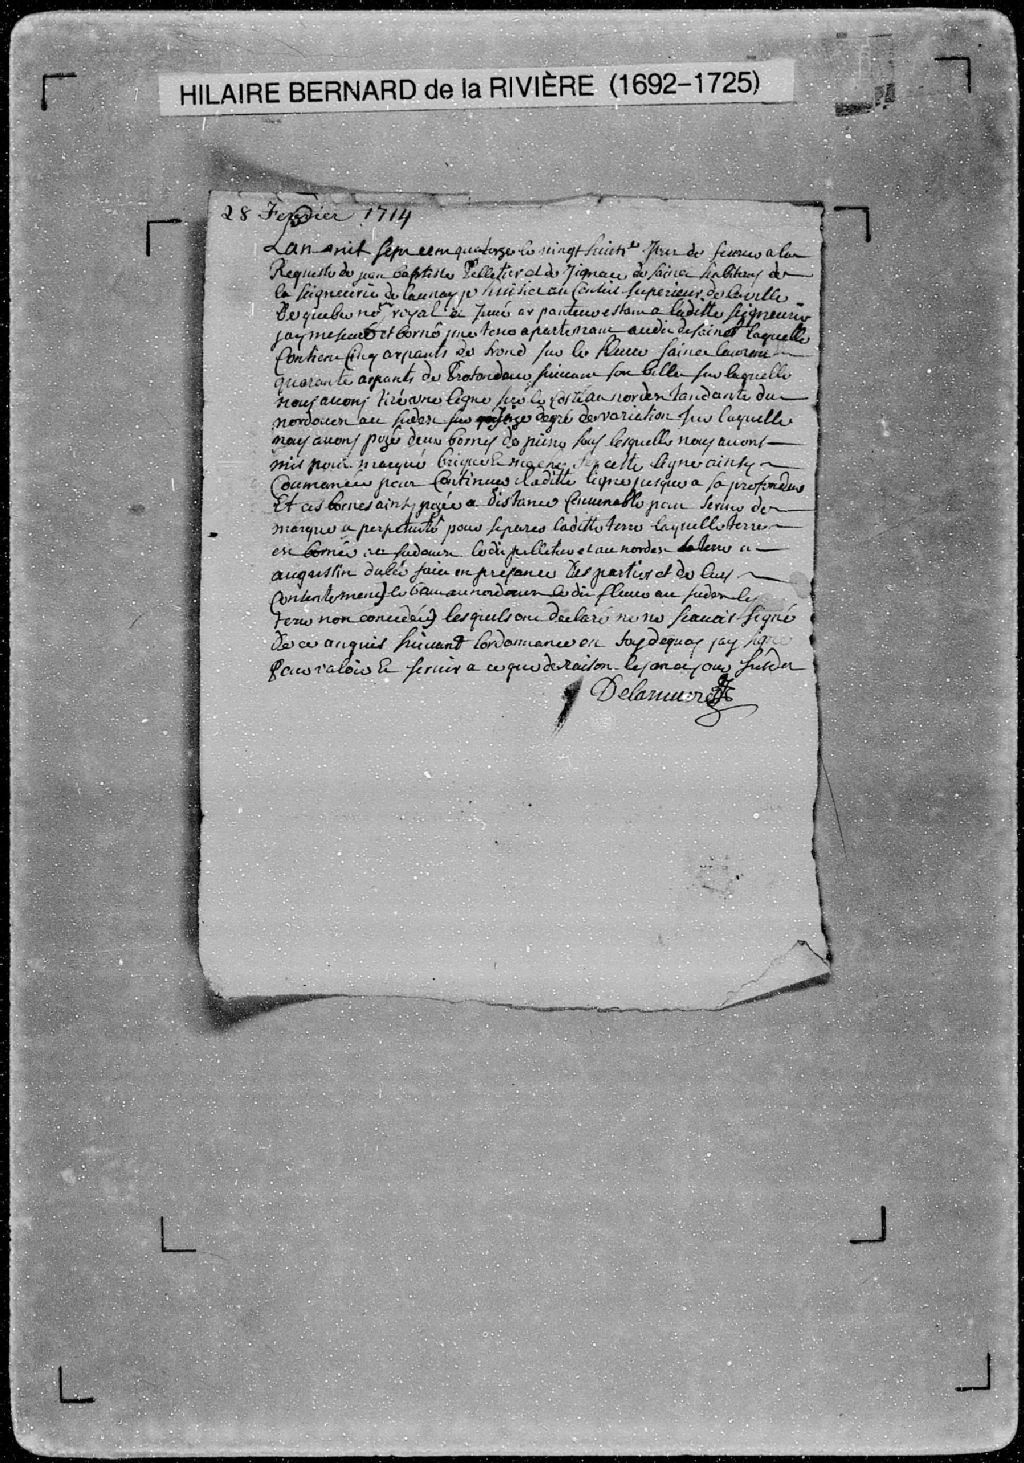 HILAIRE BERNARD de la RIVIÈRE (1692-1725)
28 Fevrier 1714
Lan mil sept cent quatorze le vingt huict.e Jour de fevrier a la
Requiste de jean baptiste Pelletier et de Jignace de sainct habitans de
la seigneurie de launay je huissier au Conseil superieur de la ville
De quebec no.re royal et Juré arpanteur estant a ladite seigneurie
jay mesuré et borné une terre apartenant audit de sainct laquelle
Contien Cinq arpants de frond sur le fleuve sainct laurens
quarante arpants de Profondeur suivant son billet sur laquelle
nous avons tiré une ligne sur le costé au nordest tandante du
nordouest au sudest sur degré de variation sur laquelle
nous avons pozé deux bornes de pierre sous lesquelle nous avons
mis pour marque brique et cette ligne ainsy
Coumancée pour Continuer ladite ligne jusque a sa profondeur
Et ces bornes ainsy pozée a distance Convenable pour servir de
marque a perpetuité pour separer ladite terre laquelle terre
est bornée au sudouest ledit pelletier et au nordest la terre a
augustin dubé fait en presance des partiës et de leur
Contentement le bout au nordouest ledit fleuve au sudest les
terre non concedeé lesquels ont declaré ne scavoir signé
De ce anquis suivant lordonnance en foy de quoy jay signé
Pour valoir Et servir a ce que de raison les an et jour susd.
Delariviere